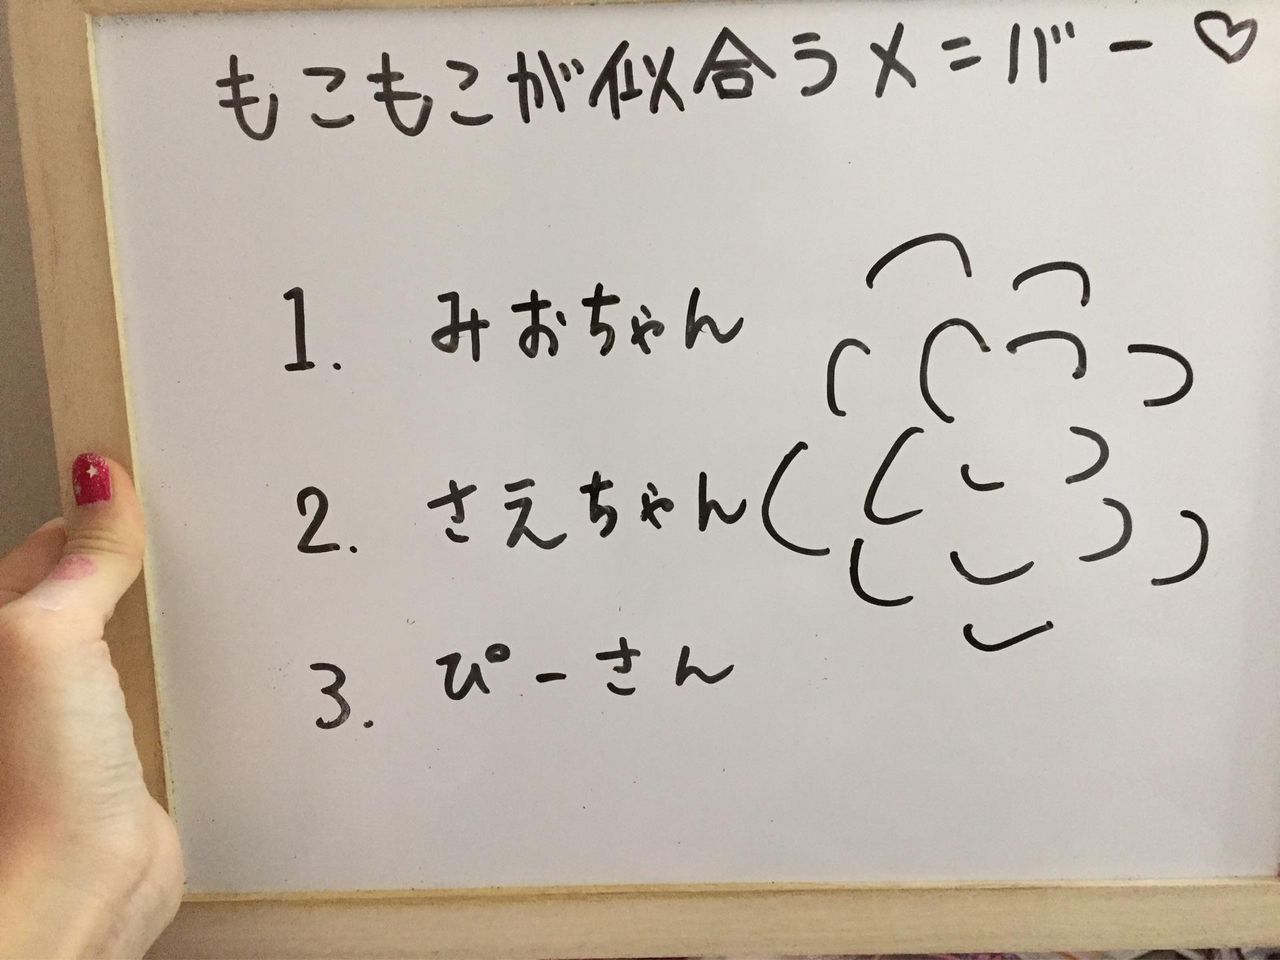 もこもこが似合うメンバー♡
1. みおちゃん
2. さえちゃん
3. ぴーさん